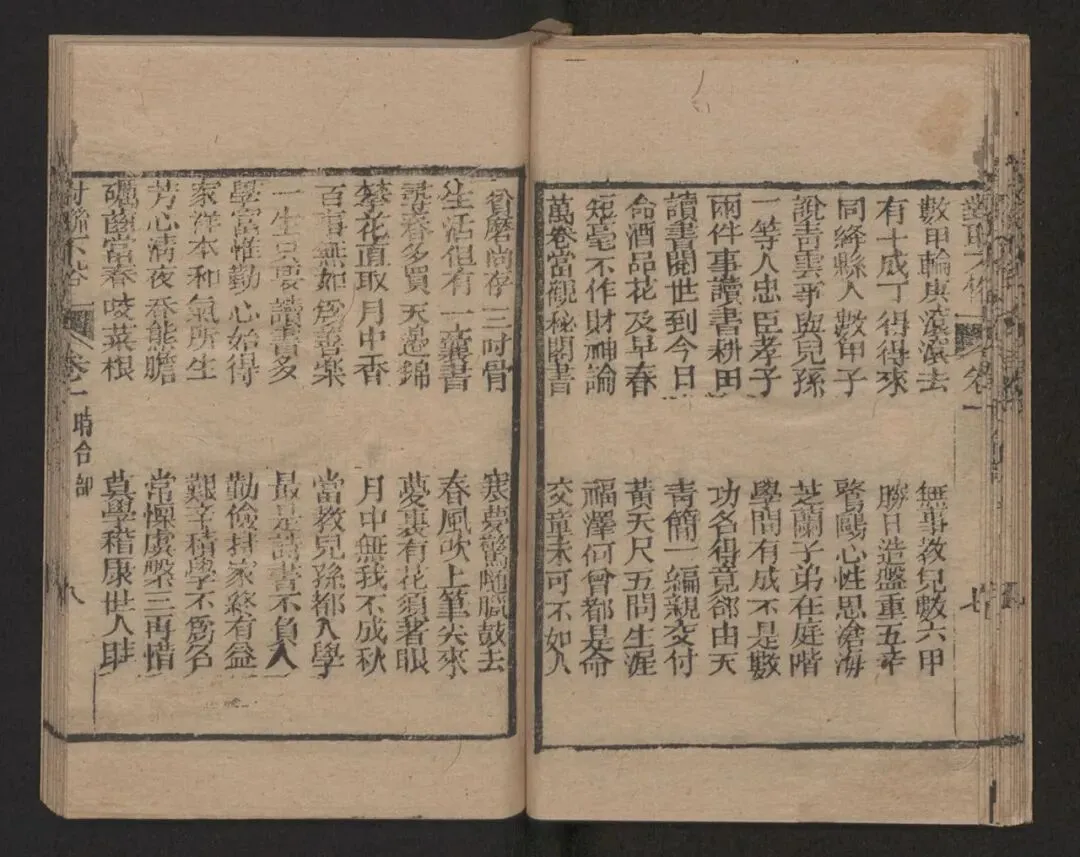 卷一 七
數甲輪庚滾滾去 無事教兒數六甲
有十成丁得得來 勝日造盤重五辛
同絳縣人數甲子 鷺鷗心性思滄海
說青雲事與兒孫 芝蘭子弟在庭階
一等人忠臣孝子 學問有成不是數
兩件事讀書耕田 功名得竟卻由天
讀書閱世到今日 青簡一編親交付
命酒品花及早春 黃天尺五問生涯
短毫不作財神論 福澤何曾都是命
萬卷當觀秘閣書 交章未可不如人
貧磨尚存三吋骨 寒夢驚隨臘鼓去
生活但有一囊書 春風吹上筆尖來
尋春多買天邊錦 夢裏有花須著眼
攀花直取月中香 月中無我不成秋
百事無如為善樂 當教兒孫都入學
一生只要讀書多 最是讀書不負人
學富惟勤心始得 勤儉持家終有益
家洋本和氣所生 艱辛積學不為名
芳心清夜吞能膽 常懍虞槃三再惜
礪齒當春咬菜根 莫學稽康世人
卷一 時合部 八